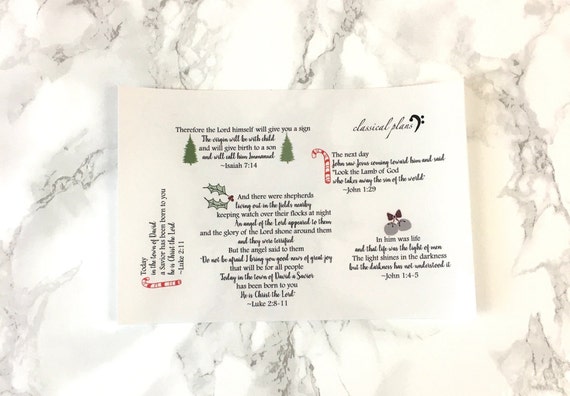 classical plans
Therefore the Lord himself will give you a sign
The virgin will be with child
and will give birth to a son
and will call him Immanuel
~Isaiah 7:14
The next day
John saw Jesus coming toward him and said
"Look the Lamb of God
who takes away the sin of the world"
~John 1:29
And there were shepherds
living out in the fields nearby
keeping watch over their flocks at night
An angel of the Lord appeared to them
and the glory of the Lord shone around them
and they were terrified
But the angel said to them
"Do not be afraid I bring you good news of great joy
that will be for all people
Today in the town of David a Savior
has been born to you
He is Christ the Lord"
~Luke 2:8-11
Today
in the town of David
a Savior has been born to you
he is Christ the Lord
~Luke 2:11
In him was life
and that life was the light of men
The light shines in the darkness
but the darkness has not understood it
~John 1:4-5